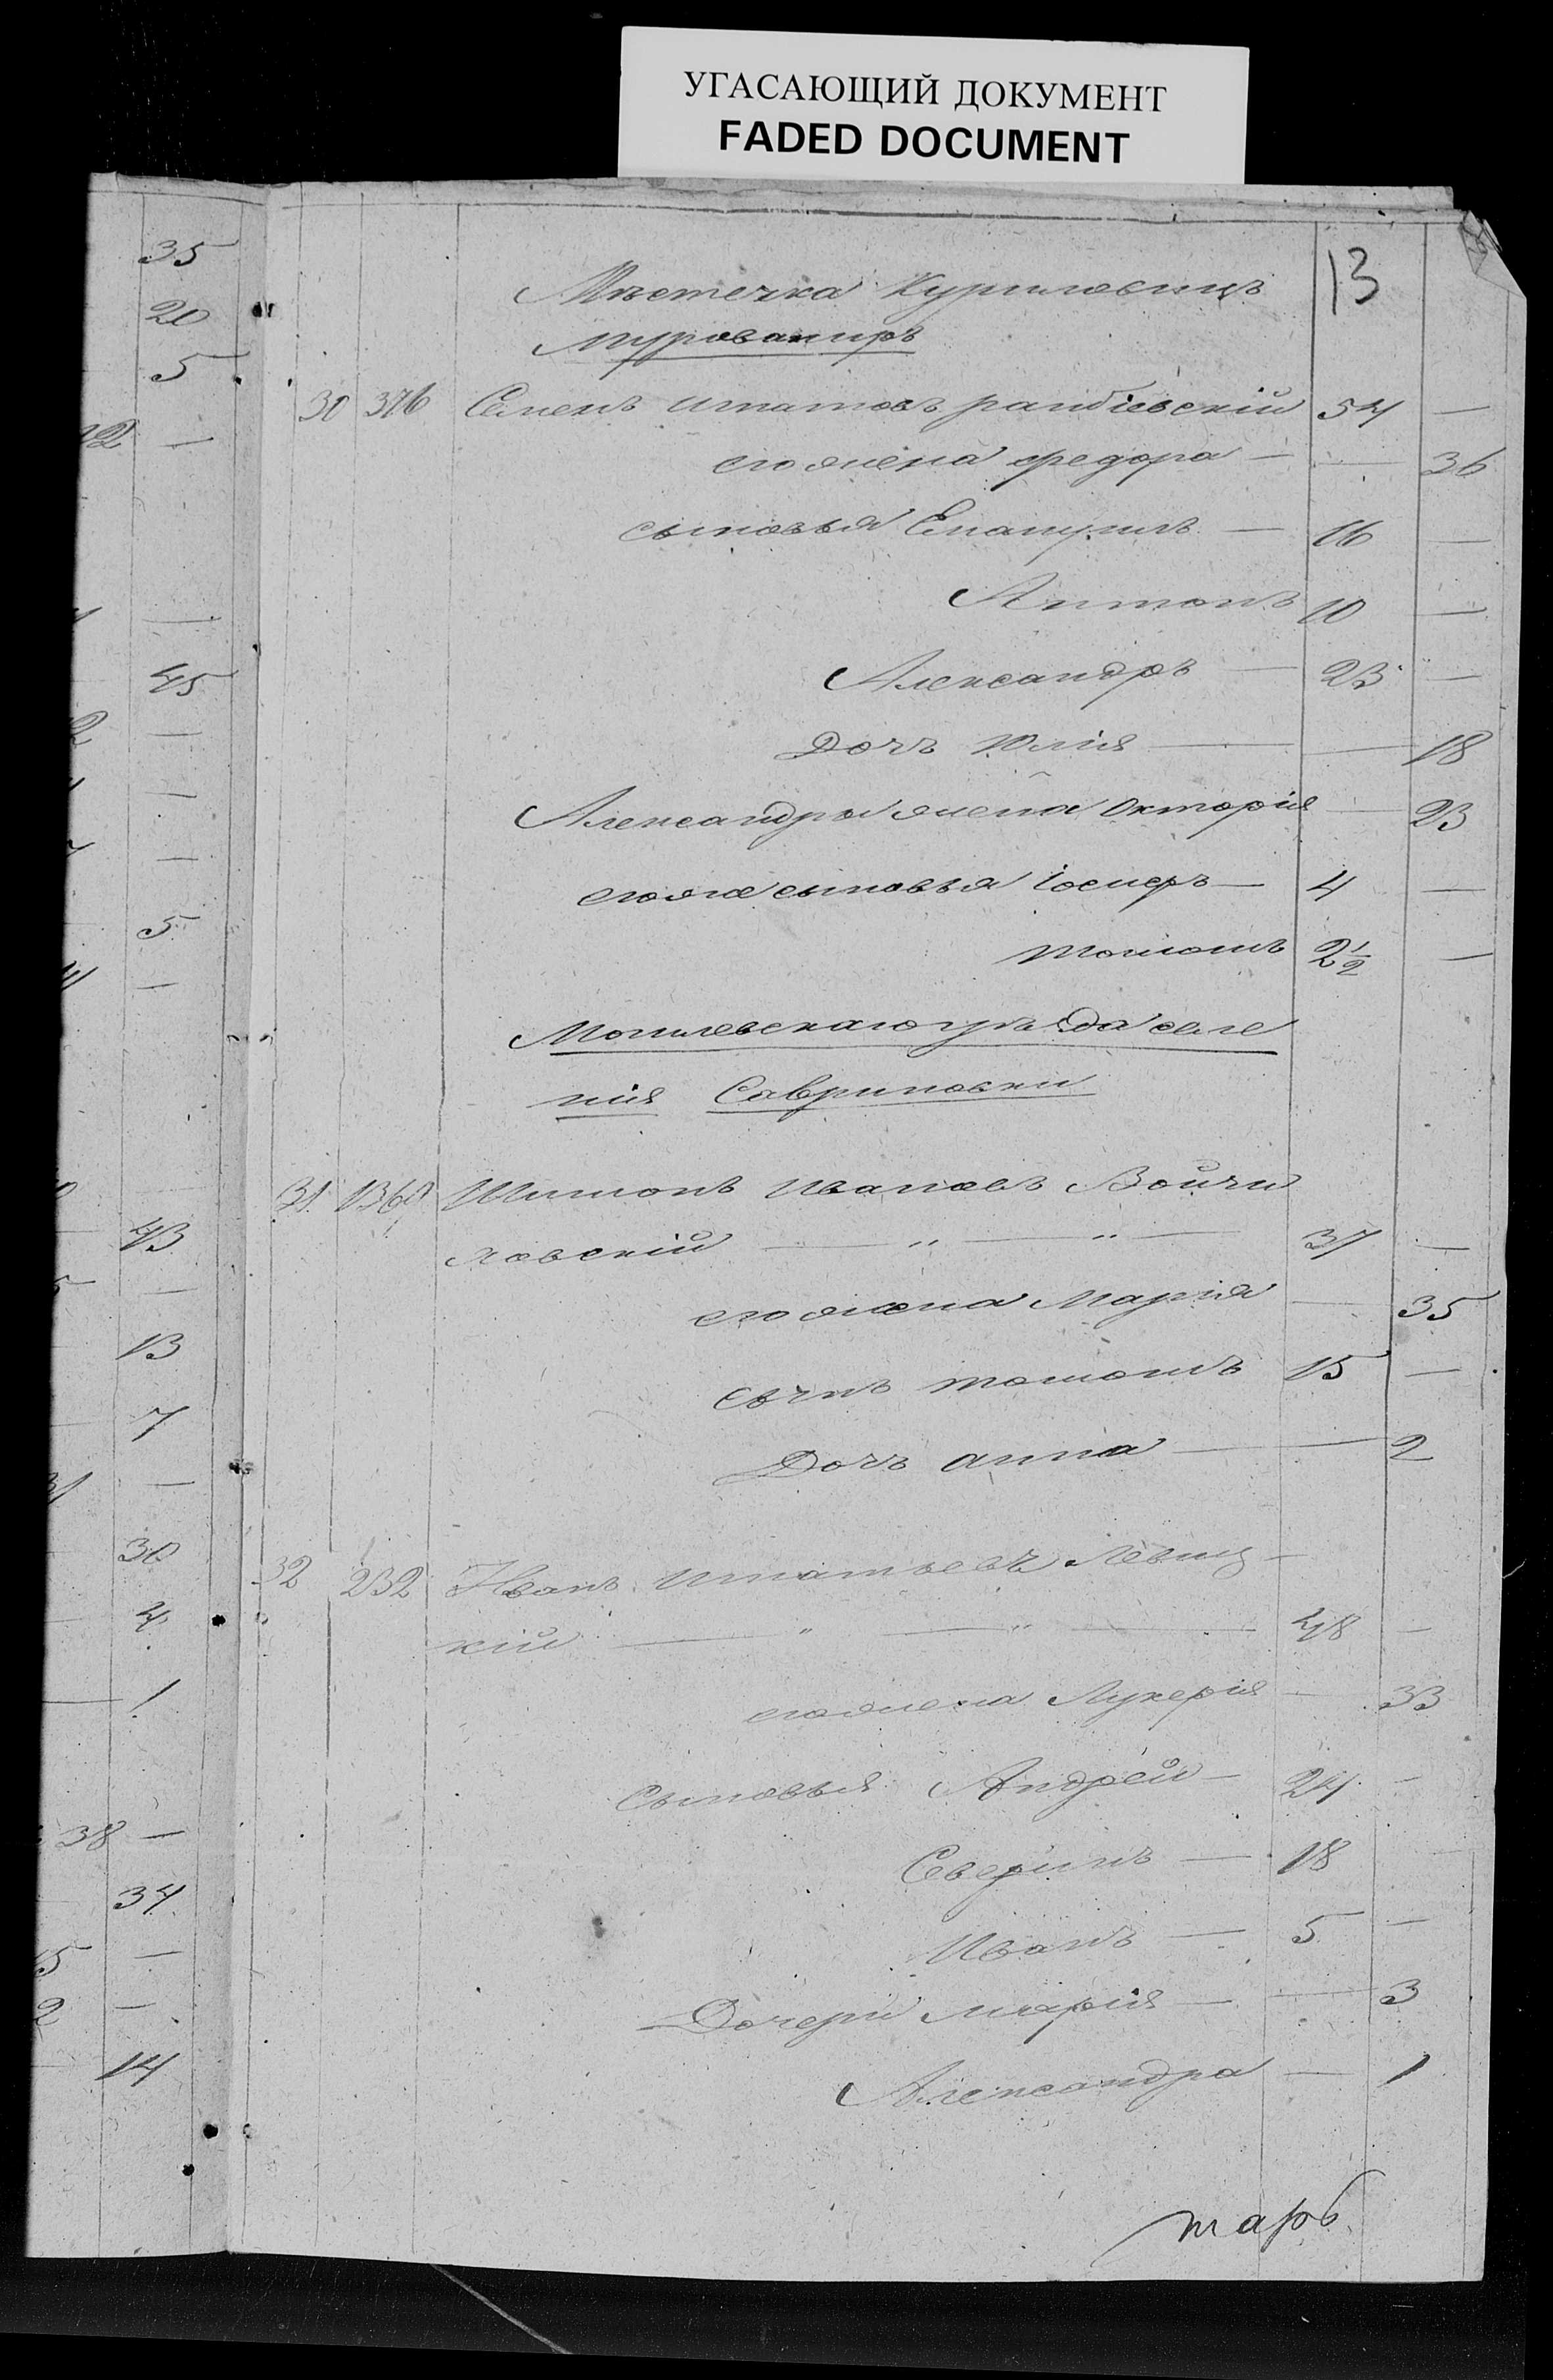 УГАСАЮЩИЙ ДОКУМЕНТ
FADED DOCUMENT
13
Мѣстечка Куриловецъ
мурованыхъ
30 376 Семенъ Игнатовъ 54 —
его жена Федора — — 36
сыновья Емануилъ — 16 —
Антонъ 10 —
Александръ — 23 —
Дочь Юлія — — 18
Александры жена Октория — 23
его же сыновья Іосифъ — 4 —
томашъ 2 1/2 —
Могилевскаго уѣзда селе
нія Савриновки
31 1369 Шимонъ Ивановъ Войчи
ловскій — " — " — 37 —
его жена Марія — 35
сынъ томашъ 15 —
Дочь анна — — 2
32 232 Иванъ Игнатьевъ Левиц
кій — " — " — 48 —
его жена Лукерія — 33
сыновья Андрей — 24 —
Северинъ — 18
Иванъ — 5 —
Дочери марія — — 3
Александра — 1
35
20
5
22 —
—
45
2 —
—
—
5
—
43
—
13
7
31 —
30
4
1
38 —
34
15 —
2 —
14